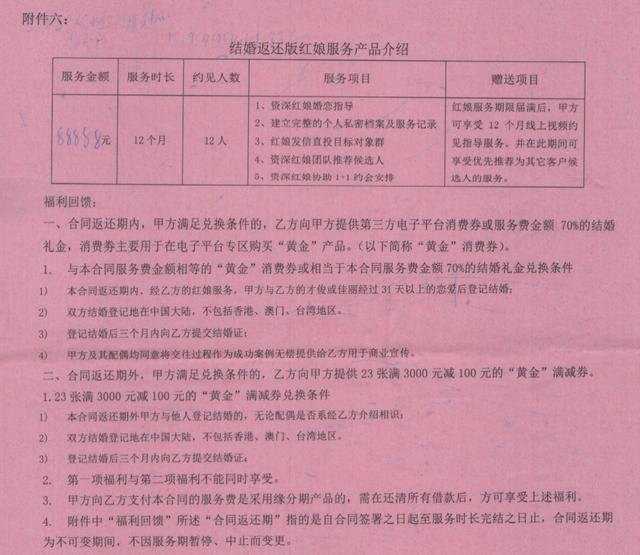 附件六：
结婚返还版红娘服务产品介绍
服务金额 服务时长 约见人数 服务项目 赠送项目
88888元 12个月 12人
1、资深红娘婚恋指导
2、建立完整的个人私密档案及服务记录
3、红娘发信直投目标对象群
4、资深红娘团队推荐候选人
5、资深红娘协助1+1约会安排
红娘服务期限届满后，甲方
可享受 12 个月线上视频约
见指导服务。并在此期间可
享受优先推荐为其它客户候
选人的服务。
福利回馈：
一、合同返还期内，甲方满足兑换条件的，乙方向甲方提供第三方电子平台消费券或服务费金额 70%的结婚
礼金，消费劵主要用于在电子平台专区购买“黄金”产品。（以下简称“黄金”消费券）。
1. 与本合同服务费金额相等的“黄金”消费券或相当于本合同服务费金额70%的结婚礼金兑换条件
1) 本合同返还期内，经乙方的红娘服务，甲方与乙方的才俊或佳丽经过31天以上的恋爱后登记结婚；
2) 双方结婚登记地在中国大陆，不包括香港、澳门、台湾地区。
3) 登记结婚后三个月内向乙方提交结婚证；
4) 甲方及其配偶均同意将交往过程作为成功案例无偿提供给乙方用于商业宣传。
二、合同返还期外，甲方满足兑换条件的，乙方向甲方提供 23 张满 3000 元减 100 元的“黄金”满减券。
1.23 张满 3000 元减 100 元的“黄金”满减券兑换条件
1) 本合同返还期外甲方与他人登记结婚的，无论配偶是否系经乙方介绍相识；
2) 双方结婚登记地在中国大陆，不包括香港、澳门、台湾地区。
3) 登记结婚后三个月内向乙方提交结婚证；
2. 第一项福利与第二项福利不能同时享受。
3. 甲方向乙方支付本合同的服务费是采用缘分期产品的，需在还清所有借款后，方可享受上述福利。
4. 附件中“福利回馈”所述“合同返还期”指的是自合同签署之日起至服务时长完结之日止，合同返还期
为不可变期间，不因服务期暂停、中止而变更。